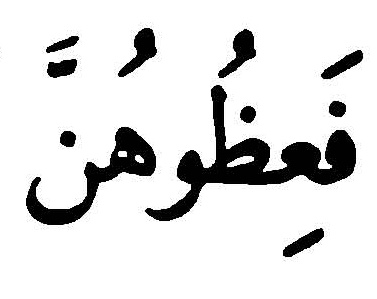 فَعِظُوهُنَّ